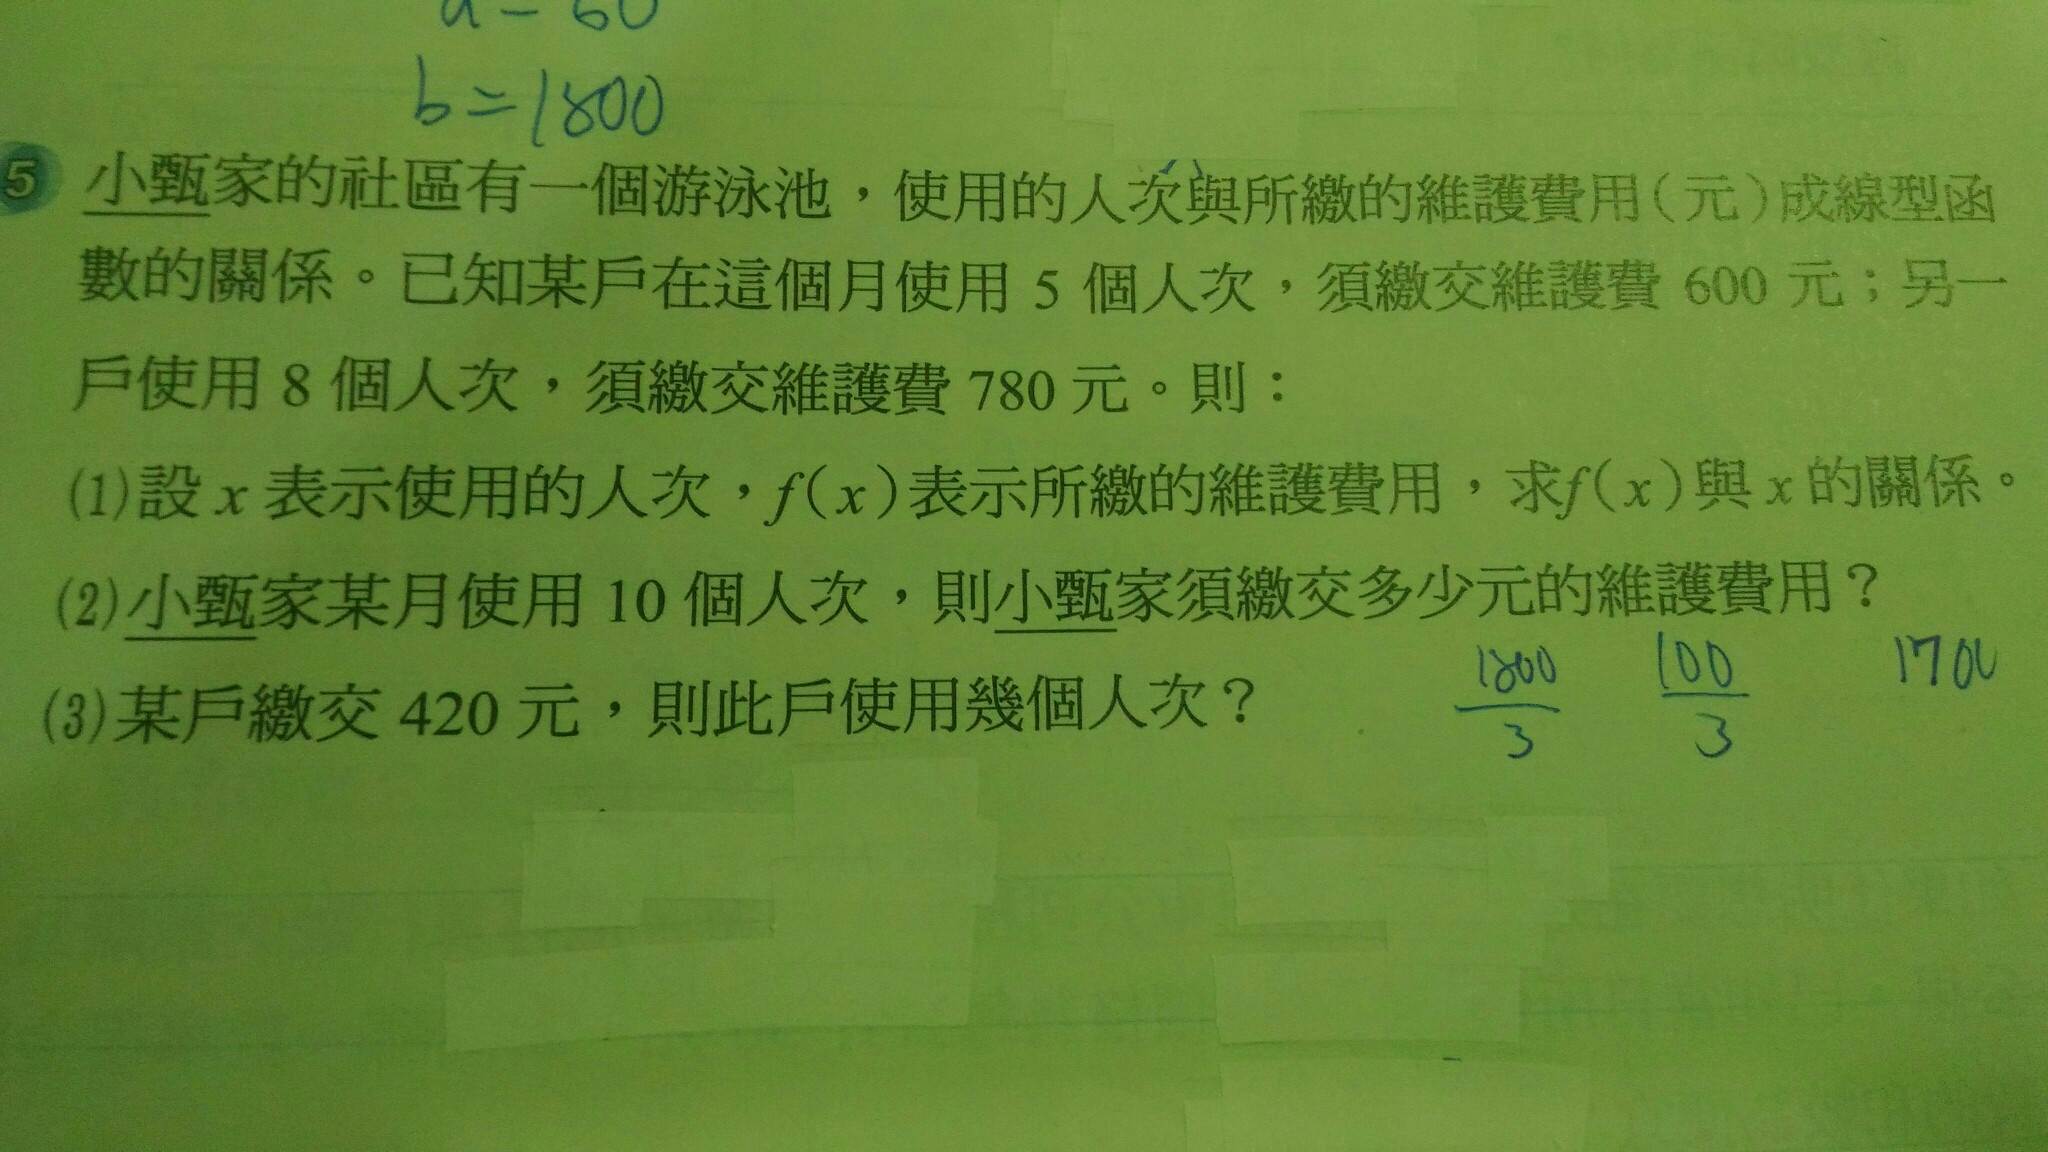 b=1800
5 小甄家的社區有一個游泳池，使用的人次與所繳的維護費用(元)成線型函
數的關係。已知某戶在這個月使用 5 個人次，須繳交維護費 600 元；另一
戶使用 8 個人次，須繳交維護費 780 元。則：
(1)設 x 表示使用的人次，f(x)表示所繳的維護費用，求f(x)與 x 的關係。
(2)小甄家某月使用 10 個人次，則小甄家須繳交多少元的維護費用？
1800/3 100/3 1700
(3)某戶繳交 420 元，則此戶使用幾個人次？